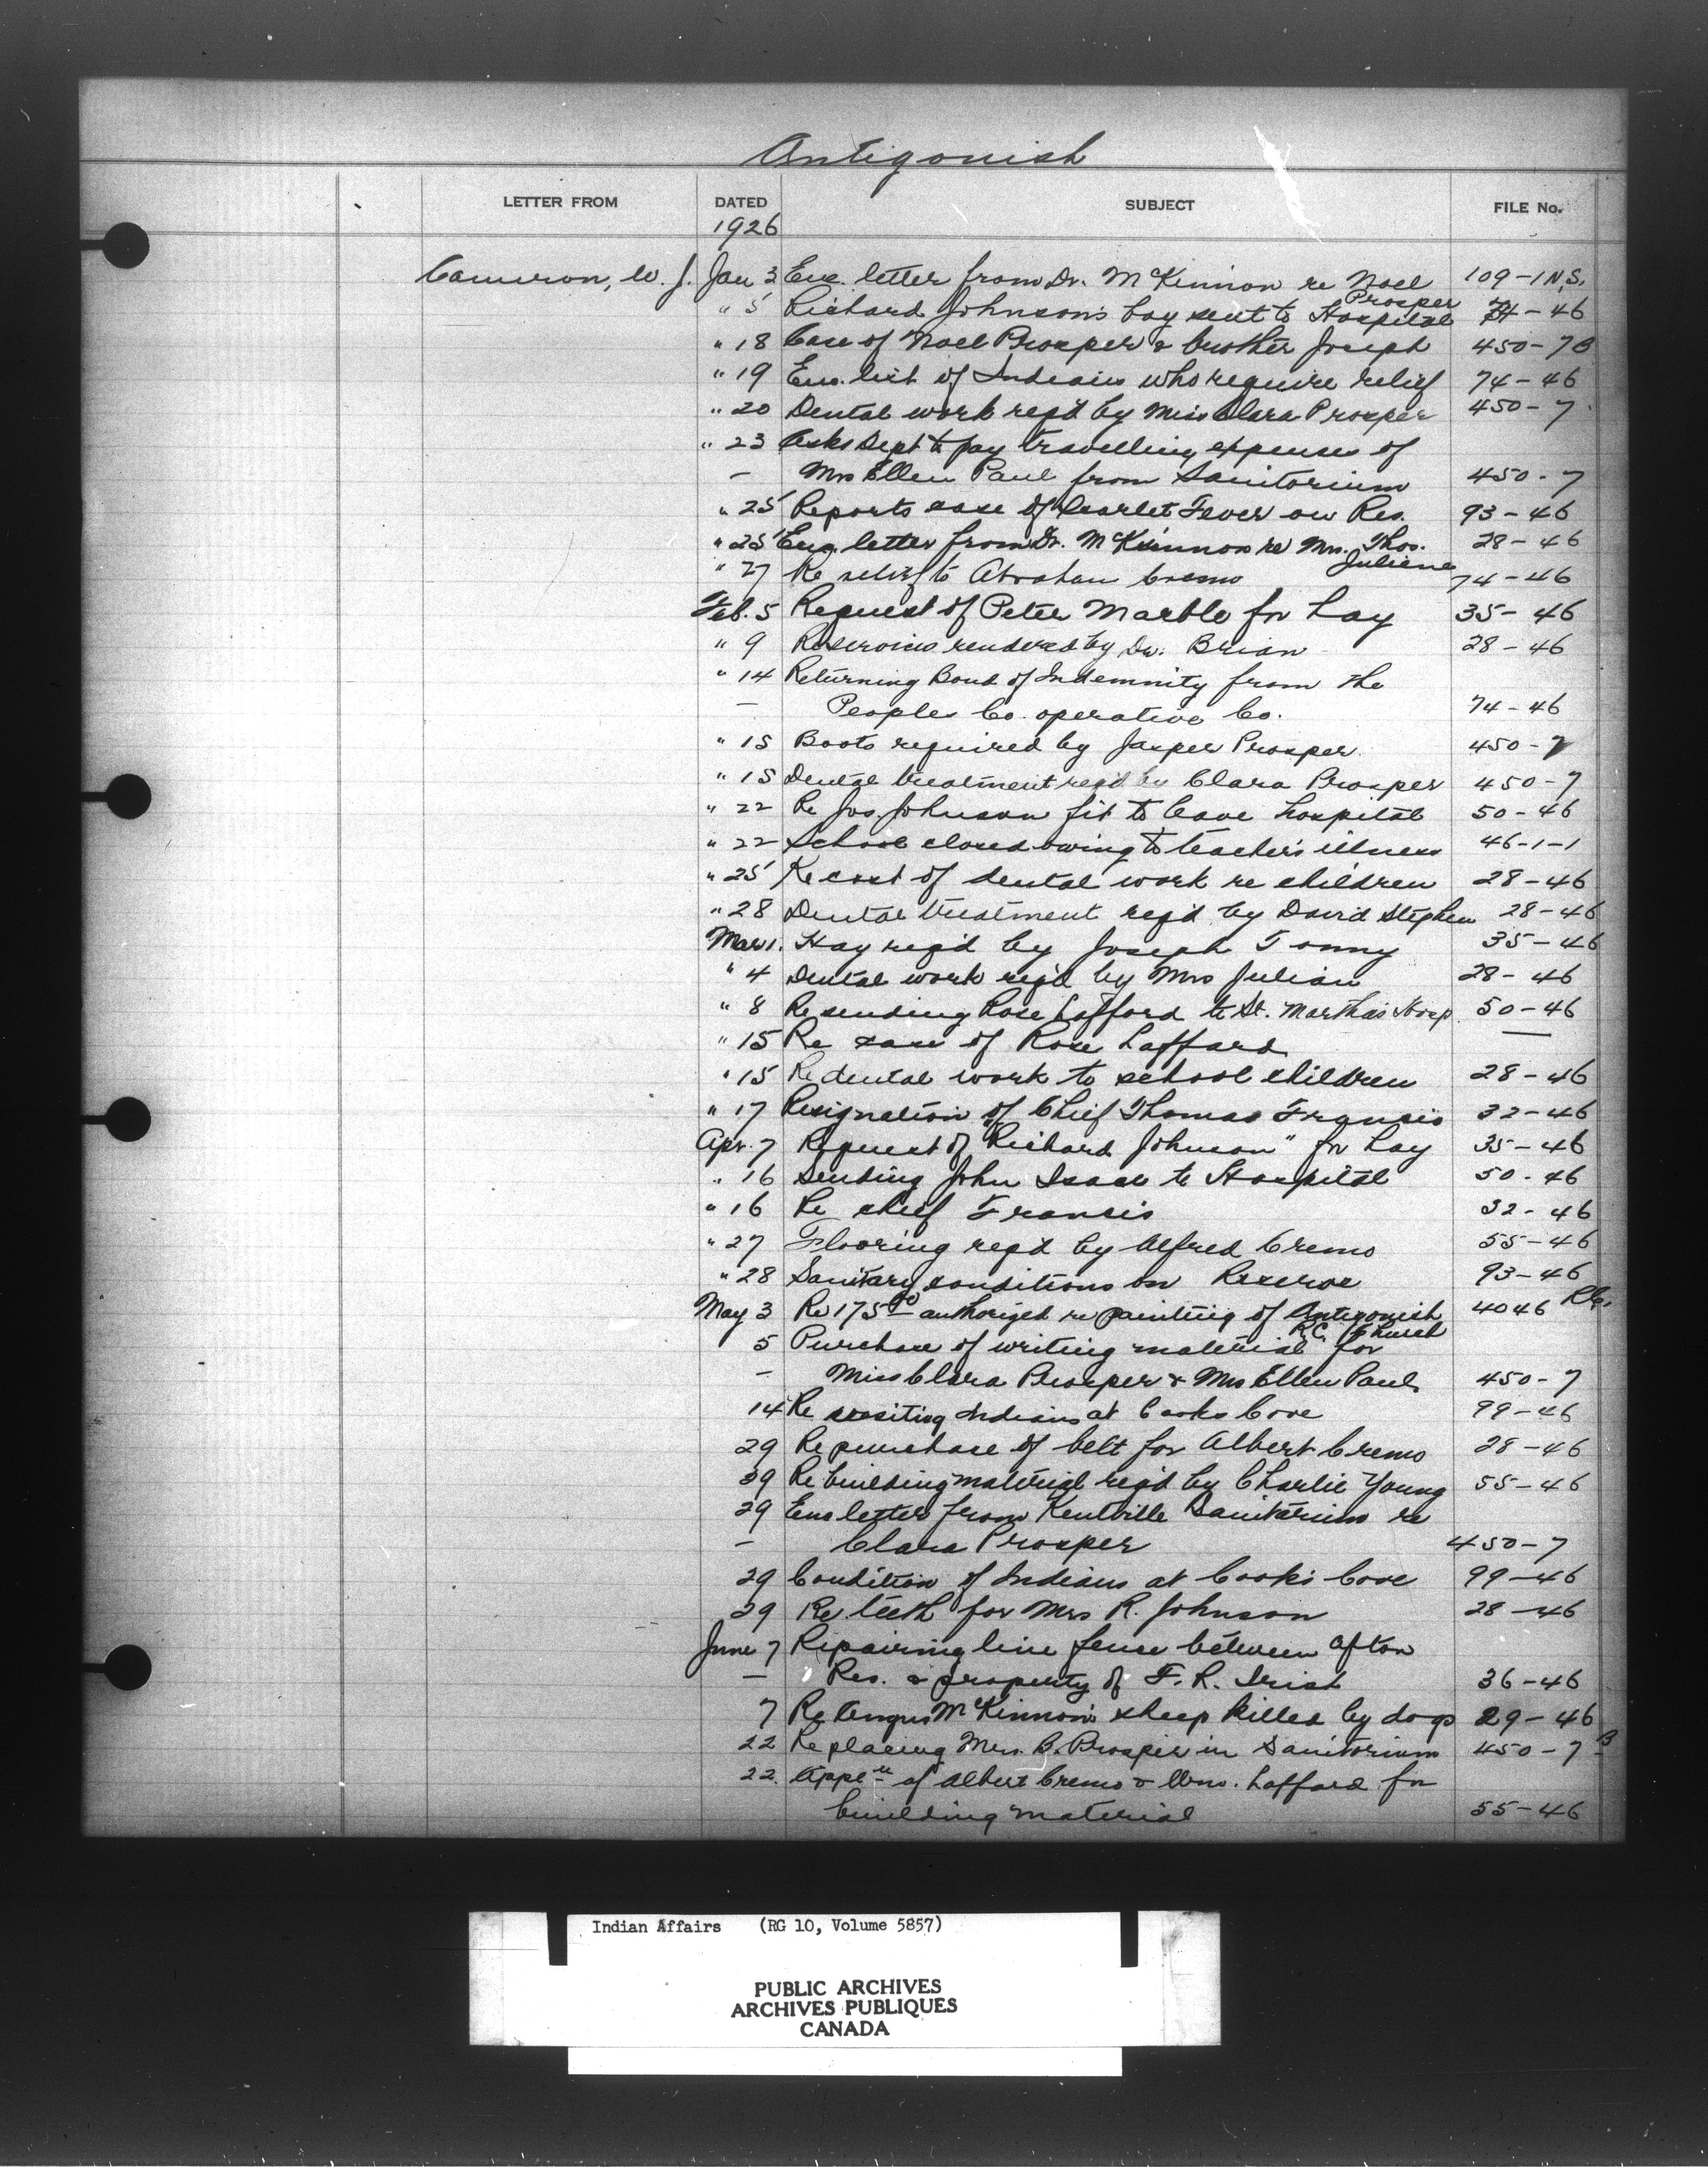 Antigonish
LETTER FROM DATED SUBJECT FILE No.
1926
Cameron, W. J. Jan 3 Enc. letter from Dr. McKinnon re Noel 109-1 N.S.
Prosper
" 5 Richard Johnson's boy sent to Hospital 74-46
" 18 Case of Noel Prosper & brother Joseph 450-7B
" 19 Enc. list of Indians who require relief 74-46
" 20 Dental work req'd by Miss Clara Prosper 450-7
" 23 Asks Dept to pay travelling expenses of
– Mrs Ellen Paul from Sanitorium 450-7
" 25 Reports case of Scarlet Fever on Res. 93-46
" 25 Enc. letter from Dr. McKinnon re Mrs. Thos. 28-46
Juliene
" 27 Re relief to Abraham Cremo 74-46
Feb. 5 Request of Peter Marble for hay 35-46
" 9 Re services rendered by Dr. Brian 28-46
" 14 Returning Bond of Indemnity from the
– Peoples Co. operative Co. 74-46
" 15 Boots required by Jasper Prosper 450-7
" 15 Dental treatment req'd by Clara Prosper 450-7
" 22 Re Jos. Johnson fit to leave hospital 50-46
" 22 School closed owing to teacher's illness 46-1-1
" 25 Re cost of dental work re children 28-46
" 28 Dental treatment req'd by David Stephen 28-46
Mar 1. Hay req'd by Joseph Tonny 35-46
" 4 Dental work req'd by Mrs Julian 28-46
" 8 Re sending Rose Lafford to St. Martha's Hosp. 50-46
" 15 Re case of Rose Laffard —
" 15 Re dental work to school children 28-46
" 17 Resignation of Chief Thomas Francis 32-46
Apr. 7 Request of "Richard Johnson" for hay 35-46
" 16 Sending John Isaac to Hospital 50-46
" 16 Re chief Francis 32-46
" 27 Flooring req'd by Alfred Cremo 55-46
" 28 Sanitary conditions on Reserve 93-46
May 3 Re 175 00 authorized re painting of Antigonish 4046 R.C.
R.C. Church
5 Purchase of writing material for
– Miss Clara Prosper & Mrs Ellen Paul 450-7
14 Re visiting Indians at Cooks Cove 99-46
29 Re purchase of belt for Albert Cremo 28-46
29 Re building material req'd by Charlie Young 55-46
29 Enc letter from Kentville Sanitarium re
– Clara Prosper 450-7
29 Condition of Indians at Cook's Cove 99-46
29 Re teeth for Mrs R. Johnson 28-46
June 7 Repairing line fence between Afton
– Res. & property of F. R. Irish 36-46
7 Re Angus McKinnon's sheep killed by dogs 29-46
22 Re placing Mrs. B. Prosper in Sanitorium 450-7 B
22. Appl n of Albert Cremo & Wm. Laffard for
building material 55-46
Indian Affairs (RG 10, Volume 5857)
PUBLIC ARCHIVES
ARCHIVES PUBLIQUES
CANADA